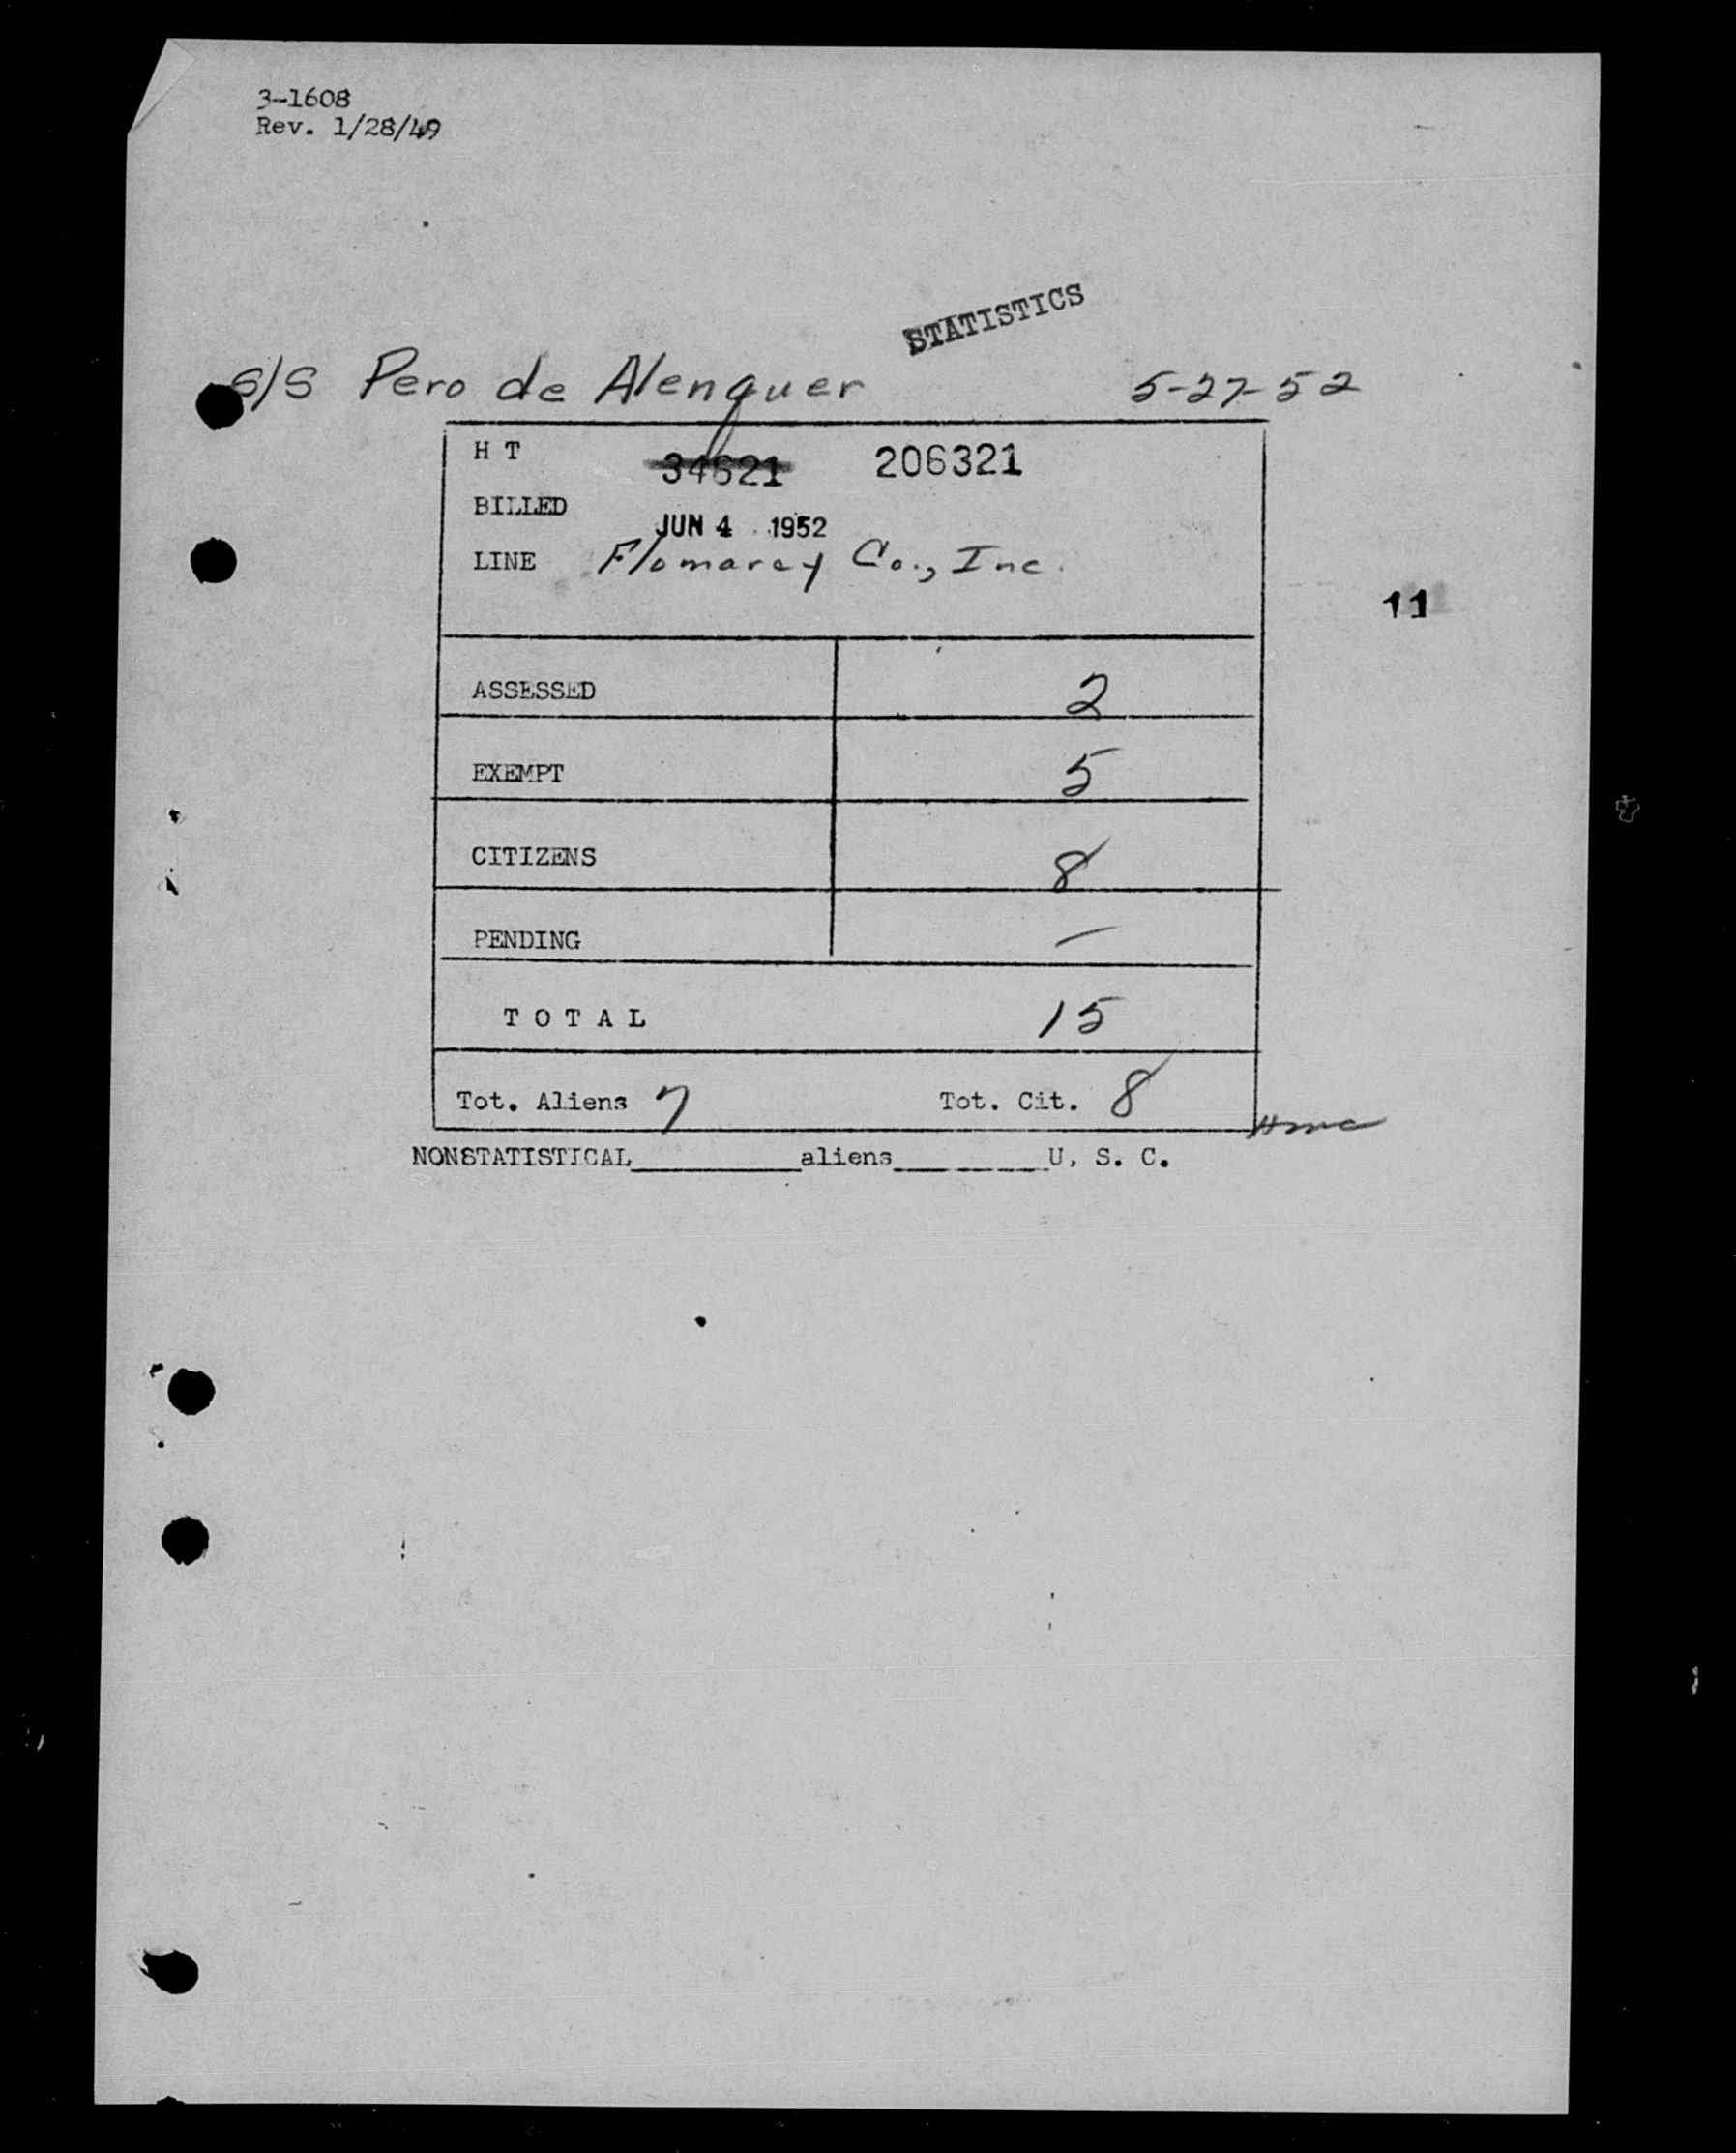 3-1608
Rev. 1/28/49
STATISTICS
S/S Pero de Alenquer 5-27-52
H T 34621 206321
BILLED JUN 4 1952
LINE Flomarcy Co., Inc.
11
ASSESSED 2
EXEMPT 5
CITIZENS 8
PENDING —
TOTAL 15
Tot. Aliens 7 Tot. Cit. 8
NONSTATISTICAL__________aliens_________U. S. C.